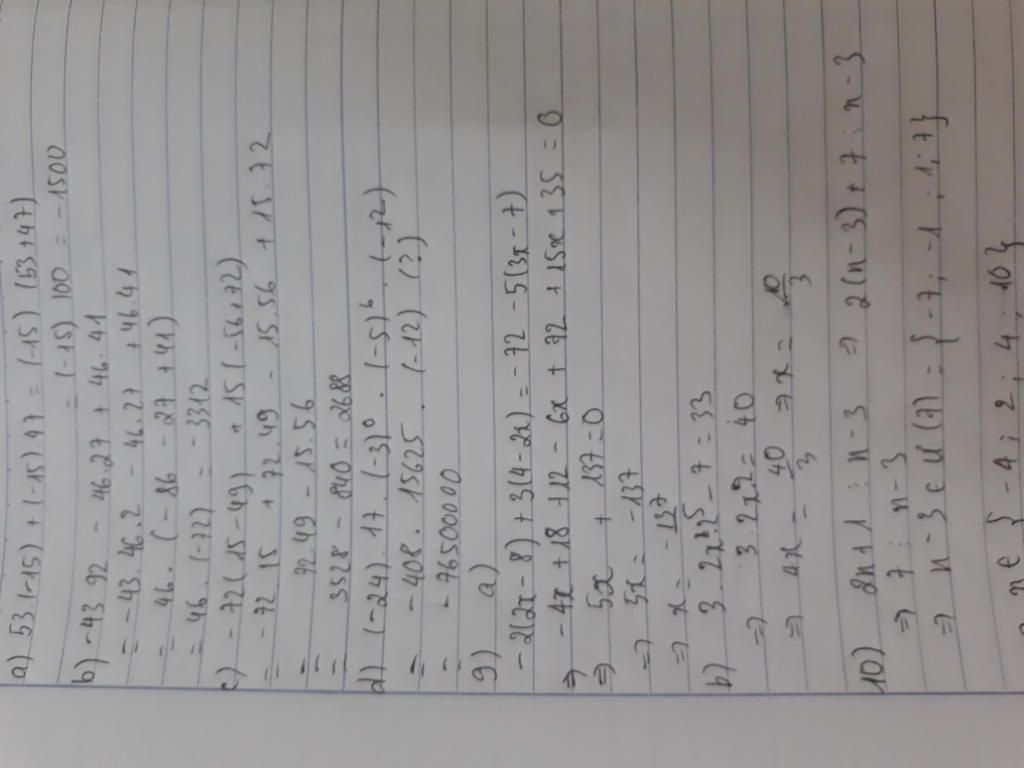 a) 53 (-15) + (-15) 47 = (-15). (53+47)
= (-15) 100 = -1500
b) -43 92 - 46.27 + 46.41
= -43.46.2 - 46.27 + 46.41
= 46. (-86 - 27 + 41)
= 46. (-72) = -3312
c) -72(15-49) + 15(-56+72)
= -72 15 + 72.49 - 15.56 + 15.72
= 72.49 - 15.56
= 3528 - 840 = 2688
d) (-24). 17. (-3)⁰. (-5)⁶. (-12)
= -408. 15625. (-12) (?)
= -76500000
9) a)
-2(2x-8) + 3(4-2x) = -72 - 5(3x-7)
=> -4x + 18 + 12 - 6x + 72 + 15x + 35 = 0
=> 5x + 137 = 0
=> 5x = -137
=> x = -137/5
b) 3. 2x² - 7 = 33
=> 3. 2x² = 40
=> 4x = 40/3 => x = 10/3
10) 2n+1 ⋮ n-3 => 2(n-3) + 7 ⋮ n-3
=> 7 ⋮ n-3
=> n-3 ∈ Ư(7) = {-7; -1; 1; 7}
n ∈ {-4; 2; 4; 10}